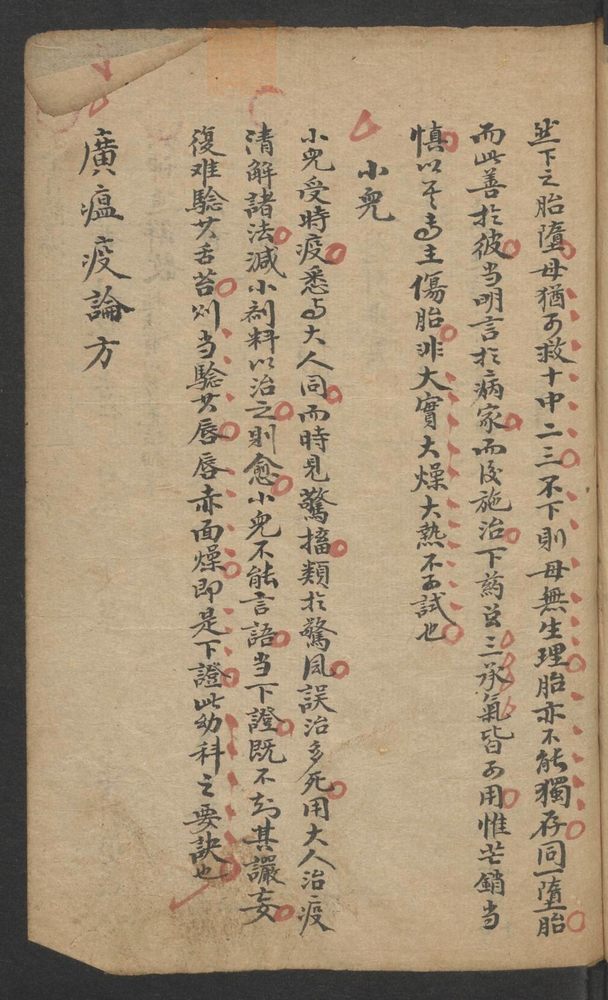 然下之胎墮母猶可救十中二三不下則母無生理胎亦不能獨存同一墮胎
而此善於彼当明言於病家而後施治下藥首三承氣皆可用惟芒銷当
慎以其專主傷胎非大實大燥大熱不可試也
小兒
小兒受時疫悉与大人同而時見驚搐類於驚風誤治多死用大人治疫
清解諸法减小劑料以治之則愈小兒不能言語当下證既不知其讝妄
復难驗其舌苔则当驗其唇唇赤面燥即是下證此幼科之要訣也
廣瘟疫論方